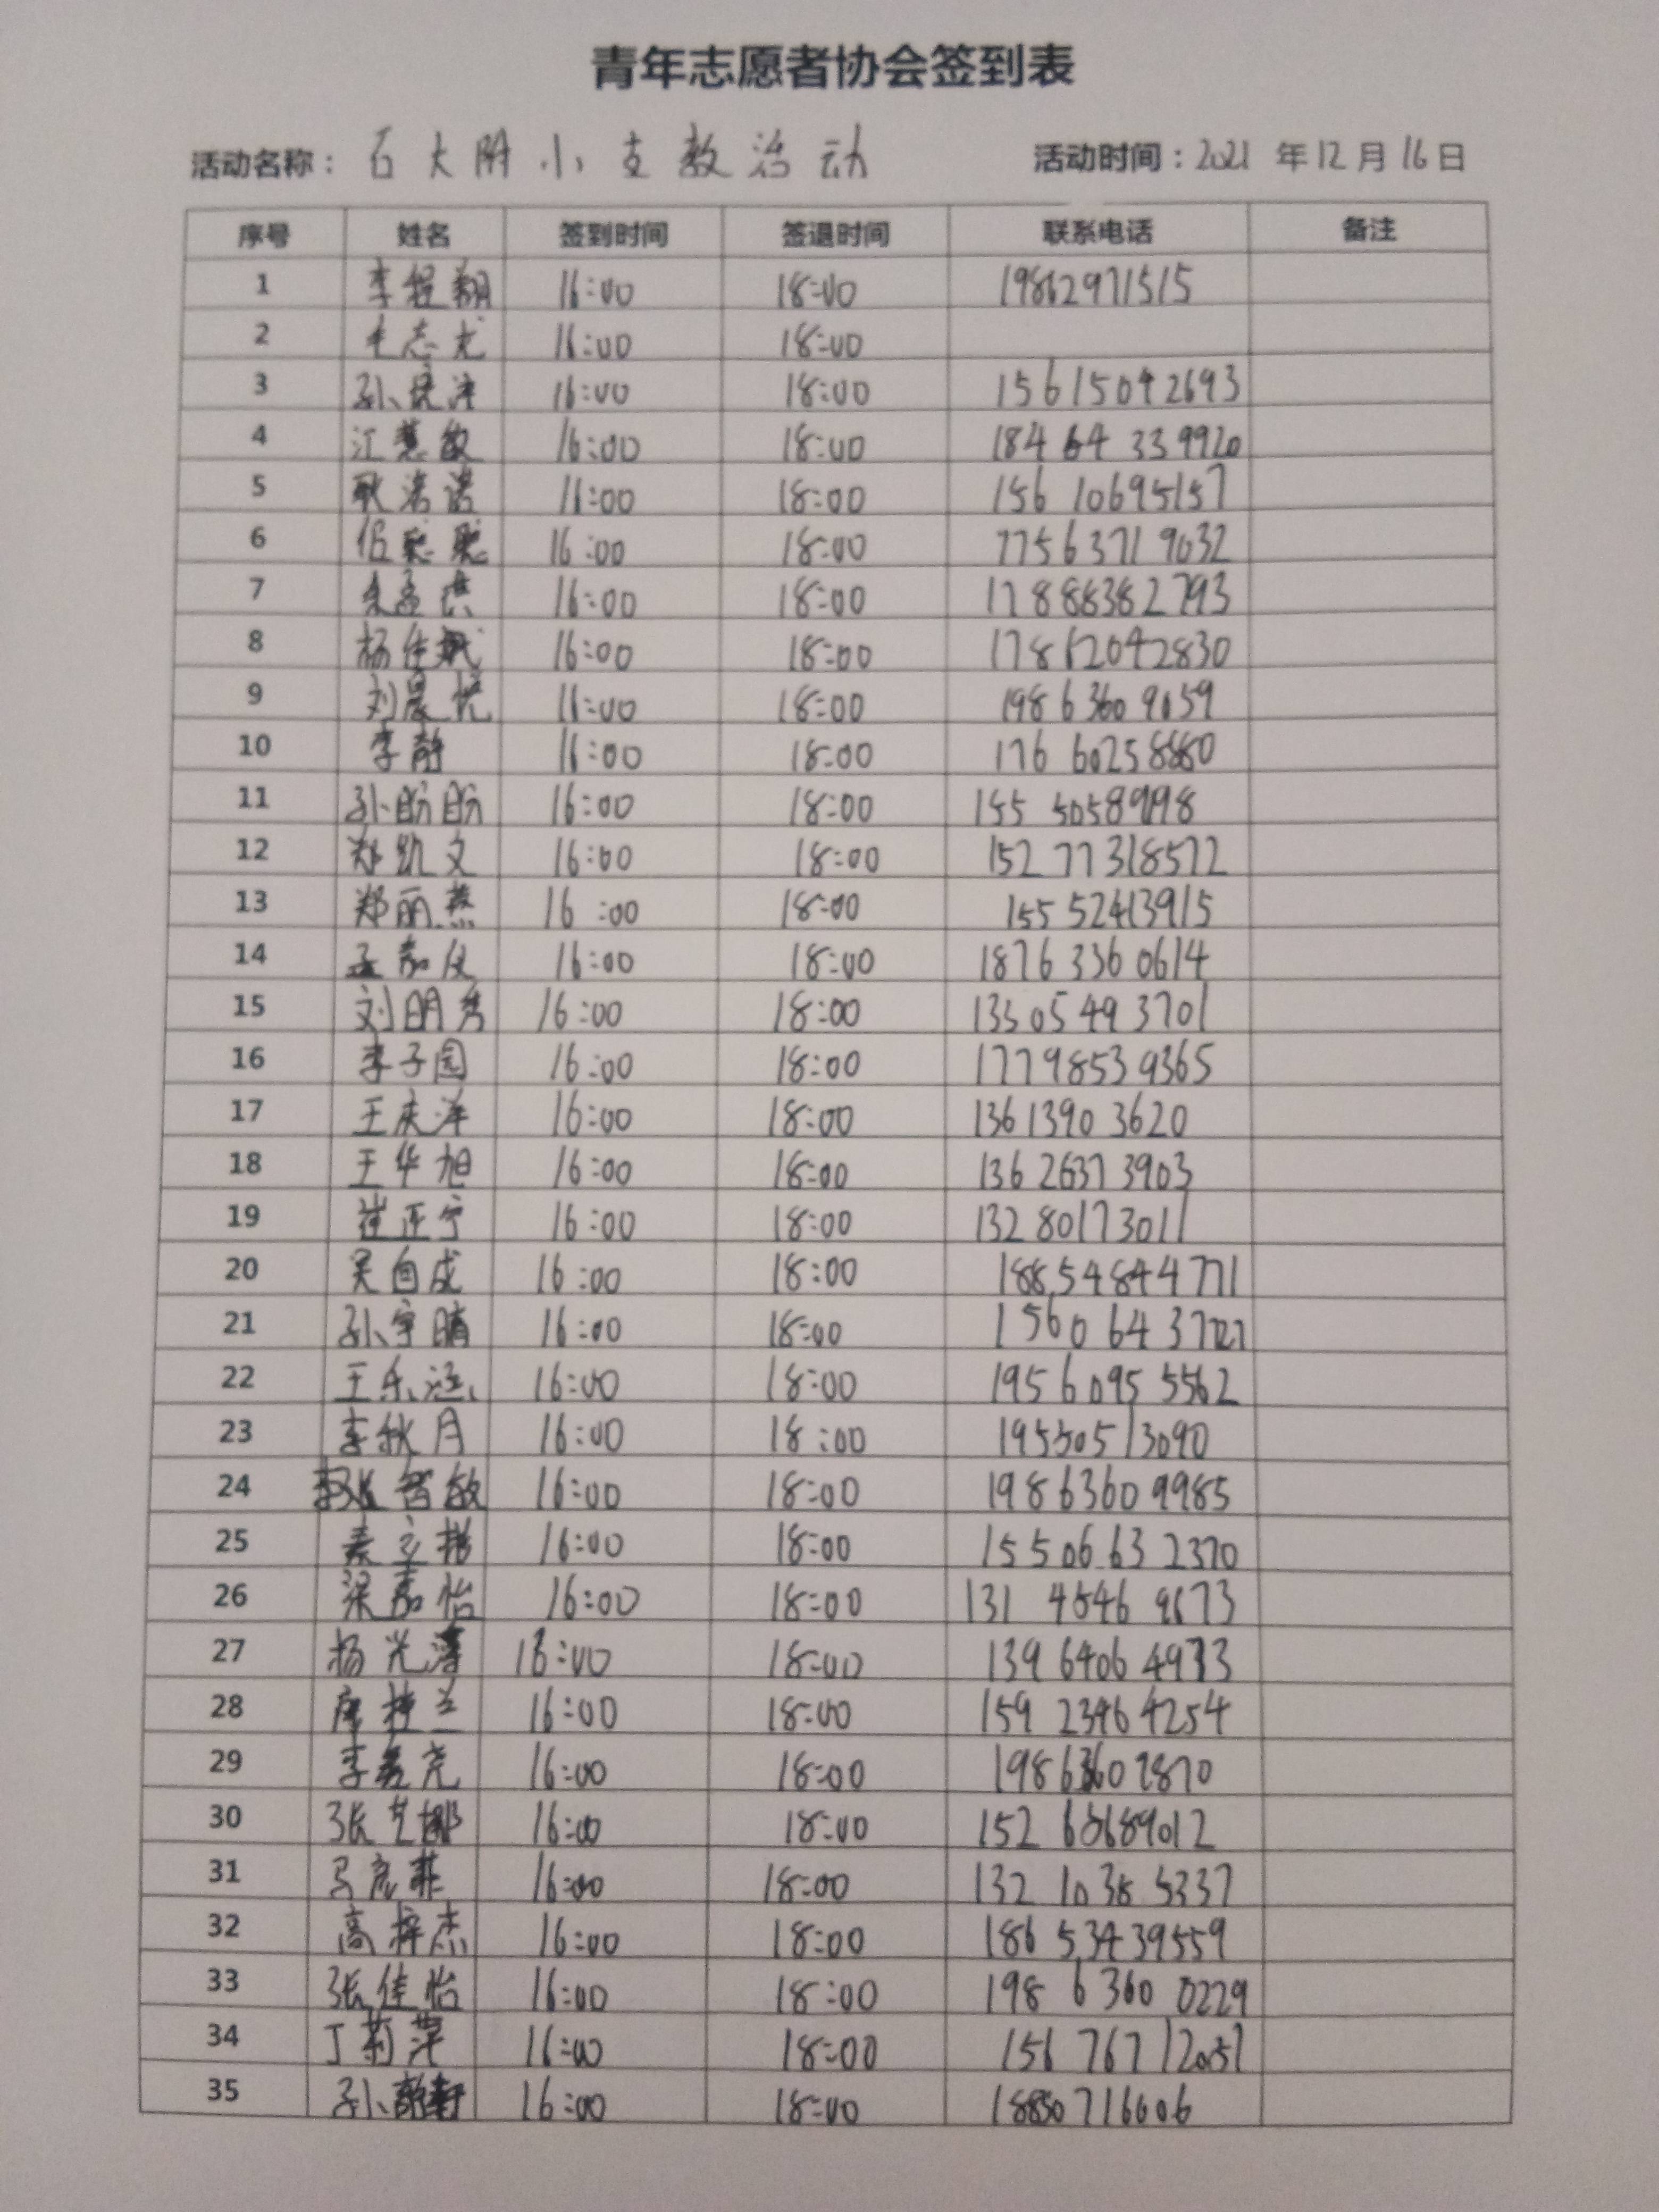 青年志愿者协会签到表
活动名称：石大附小支教活动 活动时间：2021年12月16日
序号 姓名 签到时间 签退时间 联系电话 备注
1 李程翔 16:00 18:00 19862971515
2 16:00 18:00
3 16:00 18:00 15615042693
4 江慧敏 16:00 18:00 184 64 339920
5 耿诺诺 16:00 18:00 156 10695157
6 伍聪聪 16:00 18:00 77563719032
7 朱孟琪 16:00 18:00 17888382793
8 杨佳斌 16:00 18:00 17862042830
9 刘晨悦 16:00 18:00 198 6360 9059
10 李静 16:00 18:00 176 60258880
11 孙盼盼 16:00 18:00 155 50589998
12 郑凯文 16:00 18:00 152 77318572
13 郑丽燕 16:00 18:00 155 52413915
14 孟嘉仪 16:00 18:00 1876 3360614
15 刘明秀 16:00 18:00 13505493701
16 李子园 16:00 18:00 17798539365
17 王庆洋 16:00 18:00 136 1390 3620
18 王华旭 16:00 18:00 136 2637 3903
19 崔正宁 16:00 18:00 132 80173011
20 吴自成 16:00 18:00 18854844771
21 孙宇晴 16:00 18:00 1560 64 37727
22 王乐涵 16:00 18:00 195 6095 5562
23 李秋月 16:00 18:00 19550513090
24 张智敏 16:00 18:00 198 6360 9985
25 16:00 18:00 155 06 63 2370
26 梁嘉怡 16:00 18:00 131 4546 9673
27 杨光 16:00 18:00 139 6406 4973
28 席桂兰 16:00 18:00 159 2346 4254
29 李 尧 16:00 18:00 198 6360 2870
30 张艺娜 16:00 18:00 152 68689012
31 马彦菲 16:00 18:00 132 1038 5337
32 高梓杰 16:00 18:00 186 53439559
33 张佳怡 16:00 18:00 198 6360 0229
34 丁莉萍 16:00 18:00 156 7671 2037
35 孙 16:00 18:00 18850716606